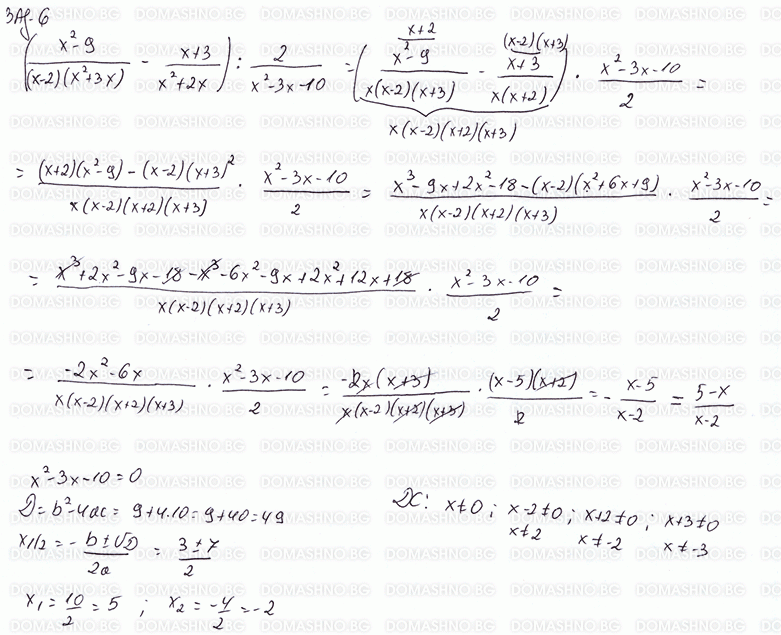 Заg. 6
(x²-9 / (x-2)(x²+3x) - x+3 / x²+2x) : 2 / x²-3x-10 = (x+2 / x²-9 / x(x-2)(x+3) - (x-2)(x+3) / x+3 / x(x+2)) · x²-3x-10 / 2 =
x(x-2)(x+2)(x+3)
= (x+2)(x²-9) - (x-2)(x+3)² / x(x-2)(x+2)(x+3) · x²-3x-10 / 2 = x³-9x+2x²-18-(x-2)(x²+6x+9) / x(x-2)(x+2)(x+3) · x²-3x-10 / 2 =
= x³+2x²-9x-18-x³-6x²-9x+2x²+12x+18 / x(x-2)(x+2)(x+3) · x²-3x-10 / 2 =
= -2x²-6x / x(x-2)(x+2)(x+3) · x²-3x-10 / 2 = -2x(x+3) / x(x-2)(x+2)(x+3) · (x-5)(x+2) / 2 = - x-5 / x-2 = 5-x / x-2
x²-3x-10=0
D=b²-4ac= 9+4.10=9+40=49
x1/2 = -b±√D / 2a = 3±7 / 2
x₁=10/2=5 ; x₂=-4/2=-2
DC: x≠0; x-2≠0; x+2≠0; x+3≠0
x≠2 x≠-2 x≠-3
DOMASHNO.BG